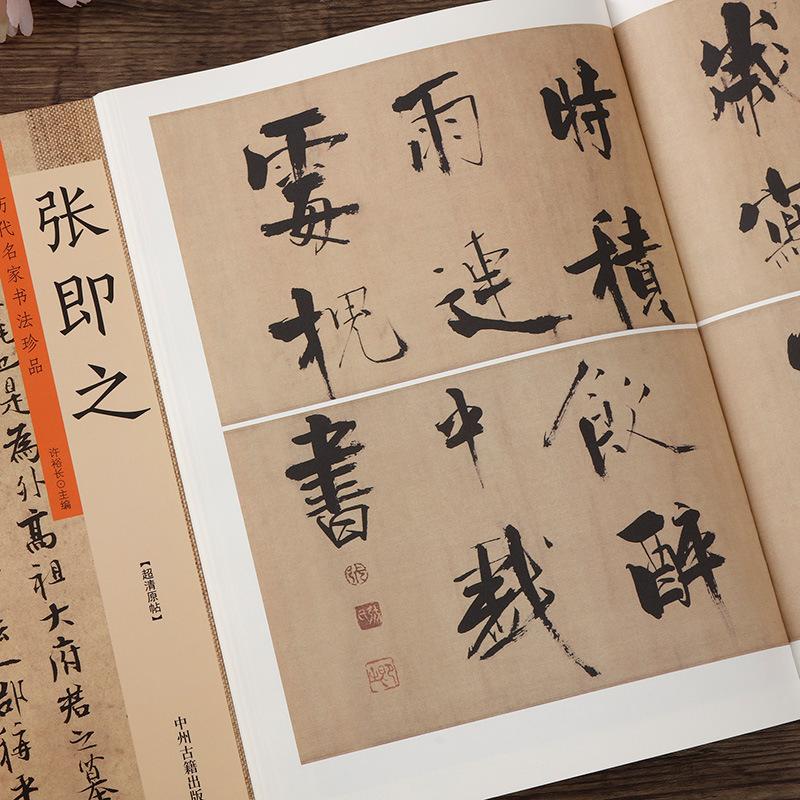 历代名家书法珍品
张即之
许裕长⊙主编
【超清原帖】
中州古籍出版
也是為外高祖大府君之墓
時積
雨連
霉
飲醉
中戲
書